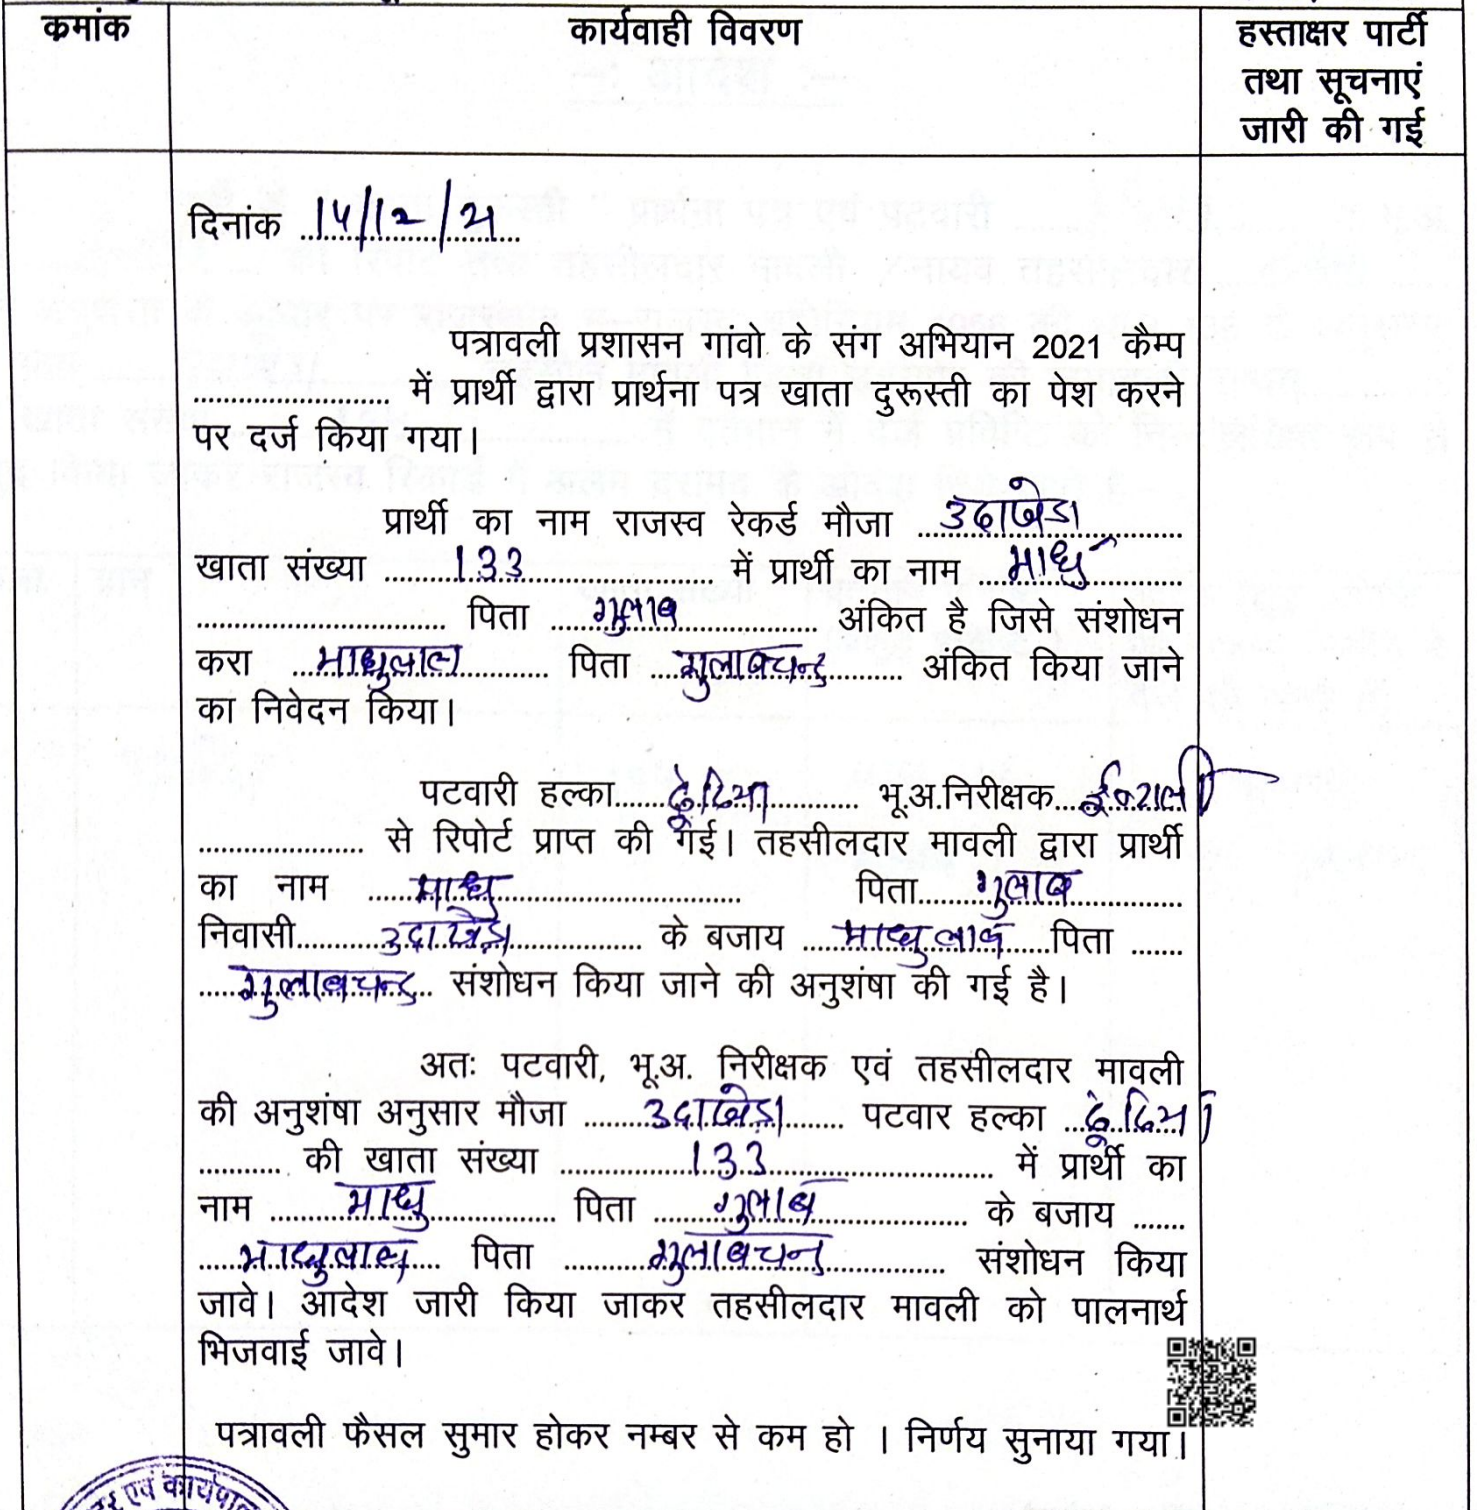 क्रमांक
कार्यवाही विवरण
हस्ताक्षर पार्टी
तथा सूचनाएं
जारी की गई
दिनांक 14/12/21
पत्रावली प्रशासन गांवो के संग अभियान 2021 कैम्प
.................... में प्रार्थी द्वारा प्रार्थना पत्र खाता दुरूस्ती का पेश करने
पर दर्ज किया गया।
प्रार्थी का नाम राजस्व रेकर्ड मौजा उदाखेडा
खाता संख्या 133 में प्रार्थी का नाम माधु
पिता गुलाब अंकित है जिसे संशोधन
करा माधुलाल पिता गुलाबचन्द्र अंकित किया जाने
का निवेदन किया।
पटवारी हल्का ढुंढिया भू.अ.निरीक्षक ईन्टाली
से रिपोर्ट प्राप्त की गई। तहसीलदार मावली द्वारा प्रार्थी
का नाम माधु पिता गुलाब
निवासी उदाखेडा के बजाय माधुलाल पिता
गुलाबचन्द्र संशोधन किया जाने की अनुशंषा की गई है।
अतः पटवारी, भू.अ. निरीक्षक एवं तहसीलदार मावली
की अनुशंषा अनुसार मौजा उदाखेडा पटवार हल्का ढुंढिया
की खाता संख्या 133 में प्रार्थी का
नाम माधु पिता गुलाब के बजाय
माधुलाल पिता गुलाबचन्द्र संशोधन किया
जावे। आदेश जारी किया जाकर तहसीलदार मावली को पालनार्थ
भिजवाई जावे।
पत्रावली फैसल सुमार होकर नम्बर से कम हो । निर्णय सुनाया गया।
एवं